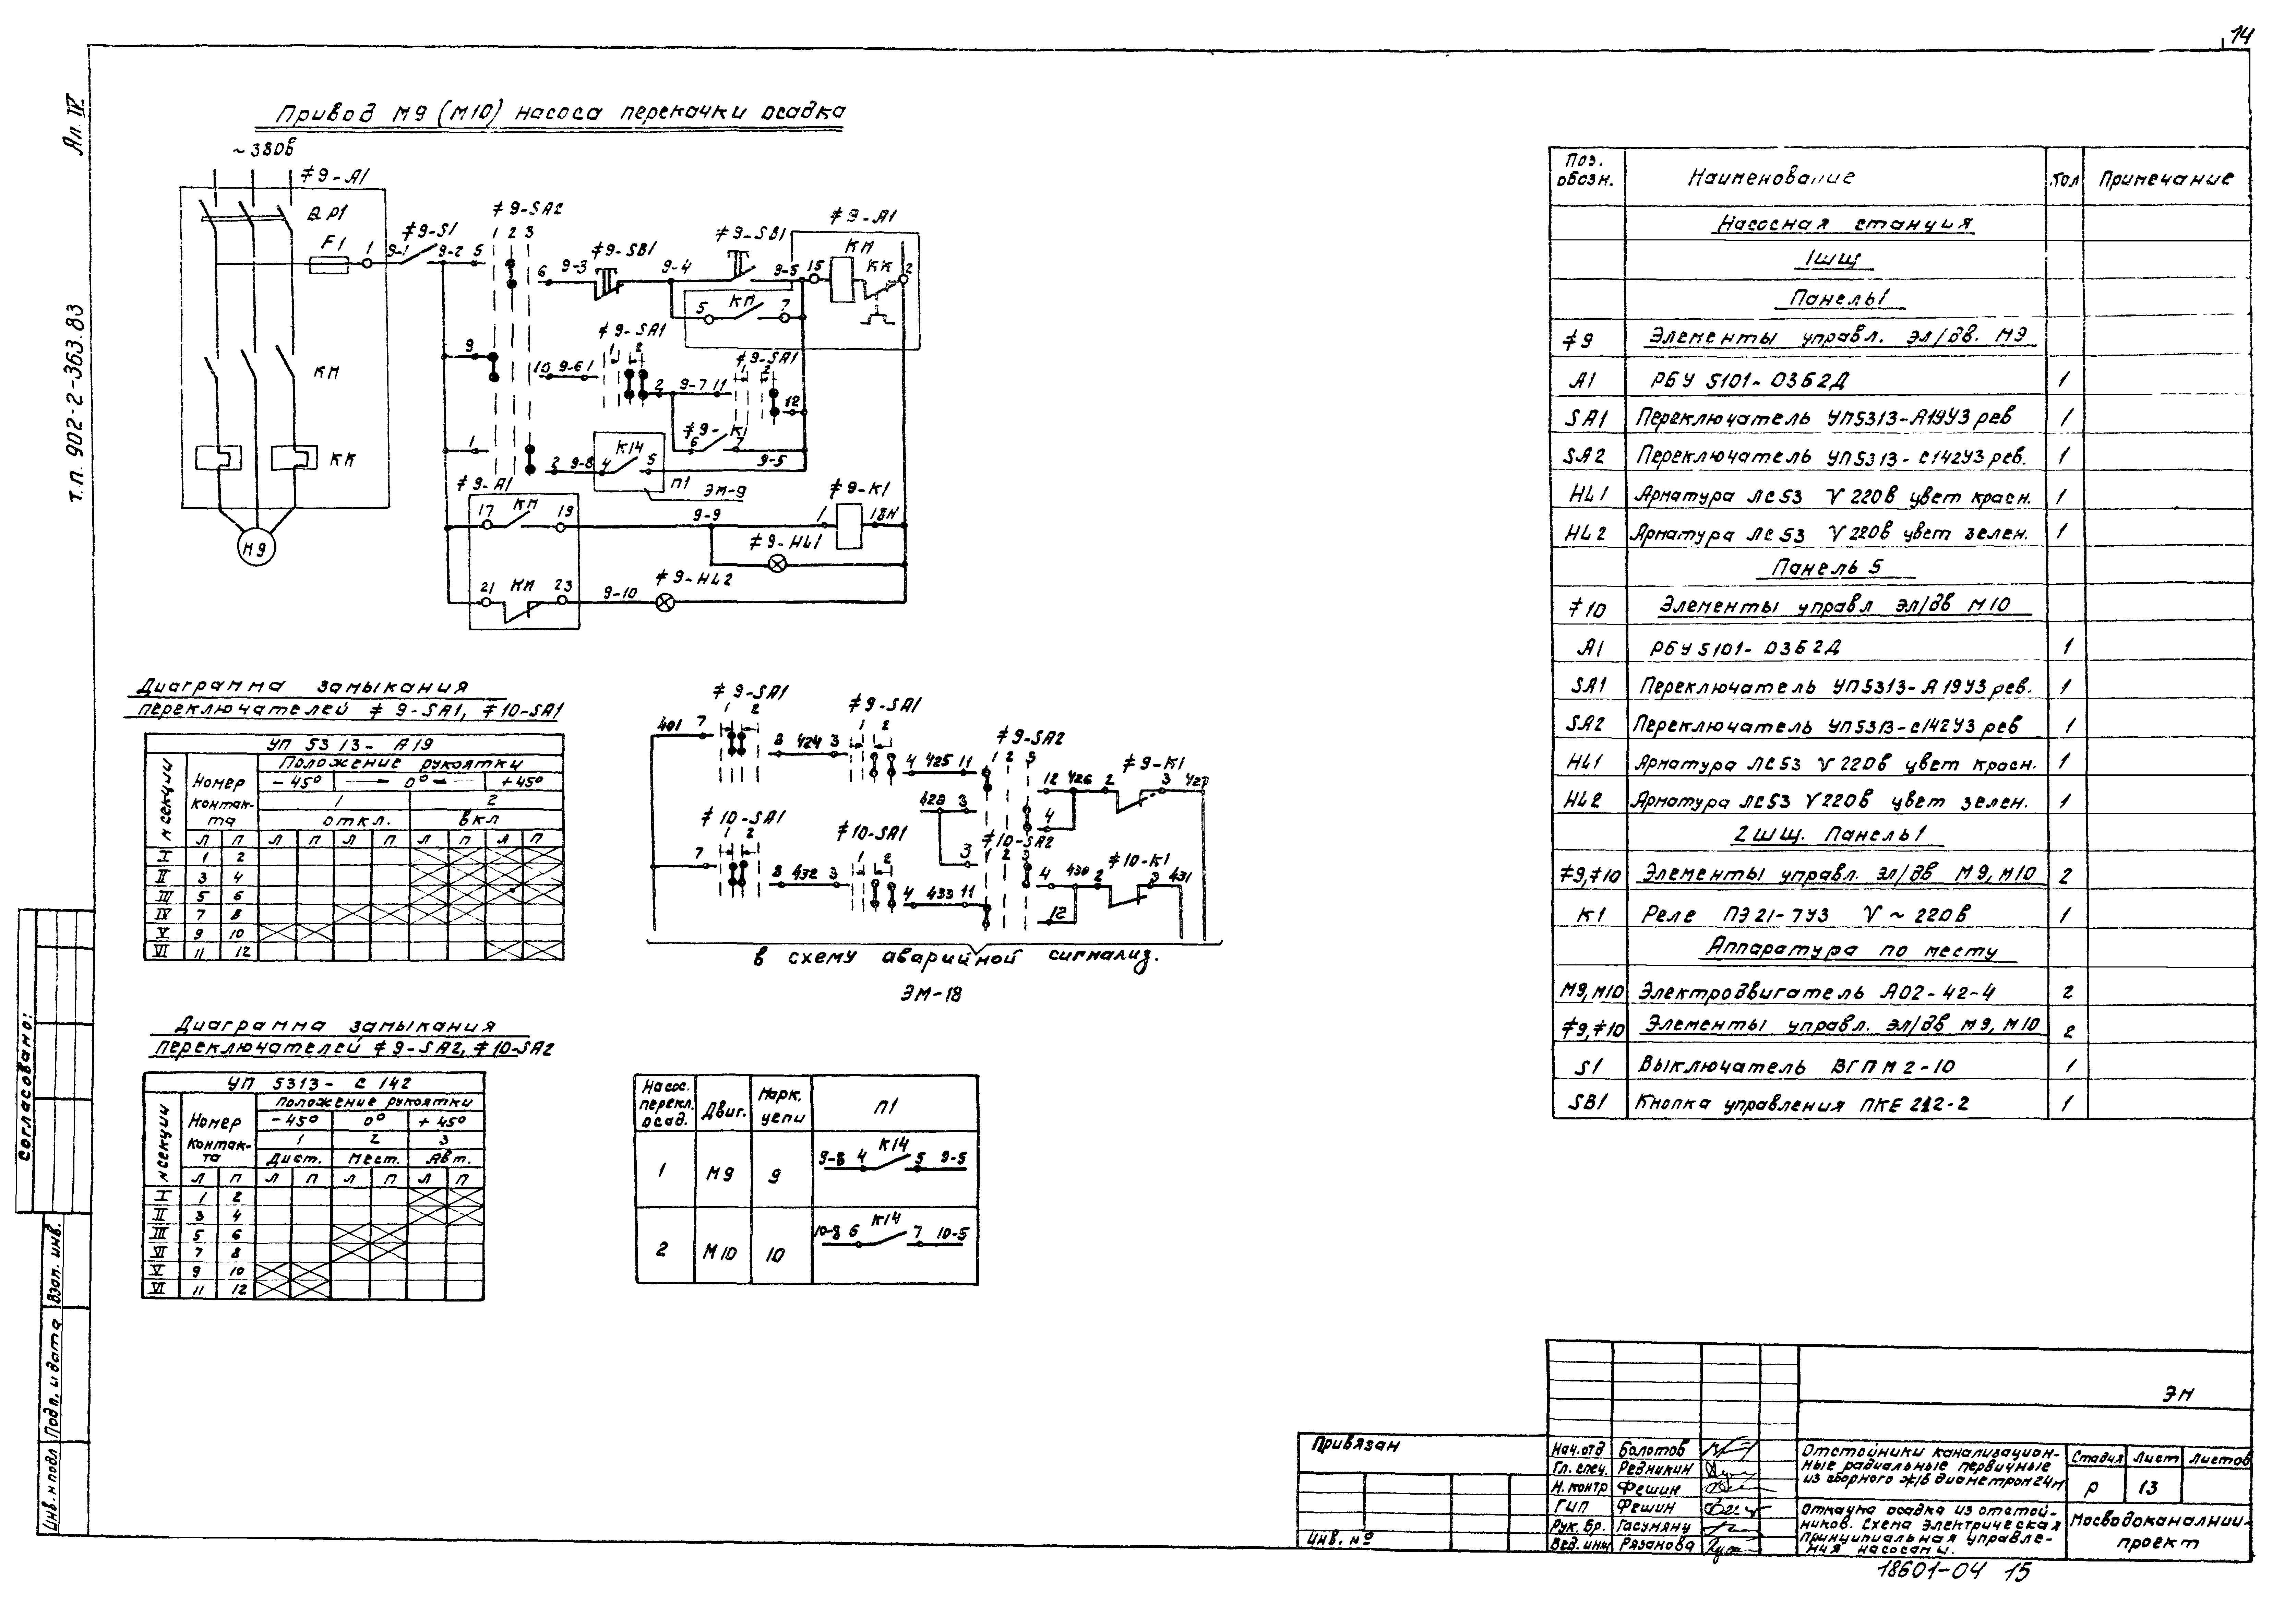 14
Ал. IV
т.п. 902-2-363.83
Привод М9 (М10) насоса перекачки осадка
~380в
≠9-А1
ВР1
F1
1
9-1
≠9-S1
9-2
5
≠9-SA2
1 2 3
6
9-3
≠9-SB1
9-4
≠9-SB1
9-5
15
≠9-А1
КМ
КК
2
5
КМ
7
КМ
КК
М9
9
10
9-6
1
≠9-SA1
1 2
2
9-7
11
≠9-SA1
1 2
12
≠9-К1
6
7
1
2
9-8
4
К14
5
9-5
П1
ЭМ-9
≠9-А1
17
КМ
19
9-9
1
≠9-К1
18N
≠9-HL1
21
КМ
23
9-10
≠9-HL2
Диаграмма замыкания
переключателей ≠9-SA1, ≠10-SA1
УП 5313-А19
N секции
Номер контак-та
Положение рукоятки
-45° 0° +45°
1 2
откл. вкл
Л П Л П Л П Л П Л П
I 1 2
II 3 4
III 5 6
IV 7 8
V 9 10
VI 11 12
Диаграмма замыкания
переключателей ≠9-SA2, ≠10-SA2
УП 5313-С142
N секции
Номер контак-та
Положение рукоятки
-45° 0° +45°
1 2 3
Дист. Мест. Авт.
Л П Л П Л П Л П
I 1 2
II 3 4
III 5 6
VI 7 8
V 9 10
VI 11 12
401
7
≠9-SA1
1 2
8
424
3
≠9-SA1
1 2
4
425
11
≠9-SA2
1 2 3
12
426
2
≠9-К1
3
427
428
3
4
7
≠10-SA1
1 2
8
432
3
≠10-SA1
1 2
4
433
11
3
≠10-SA2
1 2 3
4
430
2
≠10-К1
3
431
12
в схему аварийной сигнализ.
ЭМ-18
Насос. перекл. осад. Двиг. Марк. цепи П1
1 М9 9 9-8 4 К14 5 9-5
2 М10 10 10-8 6 К14 7 10-5
Поз. обозн. Наименование Кол Примечание
Насосная станция
1щщ
Панель 1
≠9 Элементы управл. эл/дв. М9
А1 РБУ 5101-03Б2Д 1
SA1 Переключатель УП5313-А19У3 рев 1
SA2 Переключатель УП5313-С142У3 рев. 1
HL1 Арматура ЛС53 V 220в цвет красн. 1
HL2 Арматура ЛС53 V 220в цвет зелен. 1
Панель 5
≠10 Элементы управл эл/дв М10
А1 РБУ 5101-03Б2Д 1
SA1 Переключатель УП5313-А19У3 рев. 1
SA2 Переключатель УП5313-С142У3 рев 1
HL1 Арматура ЛС53 V 220в цвет красн. 1
HL2 Арматура ЛС53 V 220в цвет зелен. 1
2щщ. Панель 1
≠9,≠10 Элементы управл. эл/дв М9, М10 2
К1 Реле ПЭ21-7У3 V~220в 1
Аппаратура по месту
М9,М10 Электродвигатель А02-42-4 2
≠9,≠10 Элементы управл. эл/дв М9, М10 2
S1 Выключатель ВГПМ2-10 1
SB1 Кнопка управления ПКЕ 212-2 1
Согласовано:
Взам. инв.
Подп. и дата
Инв. N подл
Привязан
Инв. №
Нач.отд Болотов
Гл. спец. Редникин
Н.контр Фешин
ГИП Фешин
Рук. Бр. Гасумяну
Вед. инж Рязанова
ЭМ
Отстойники канализацион-
ные радиальные первичные
из сборного ж/б диаметром 24м
Стадия Лист Листов
Р 13
Откачка осадка из отстой-
ников. Схема электрическая
принципиальная управле-
ния насосами.
Мосводоканалнии-
проект
18601-04 15